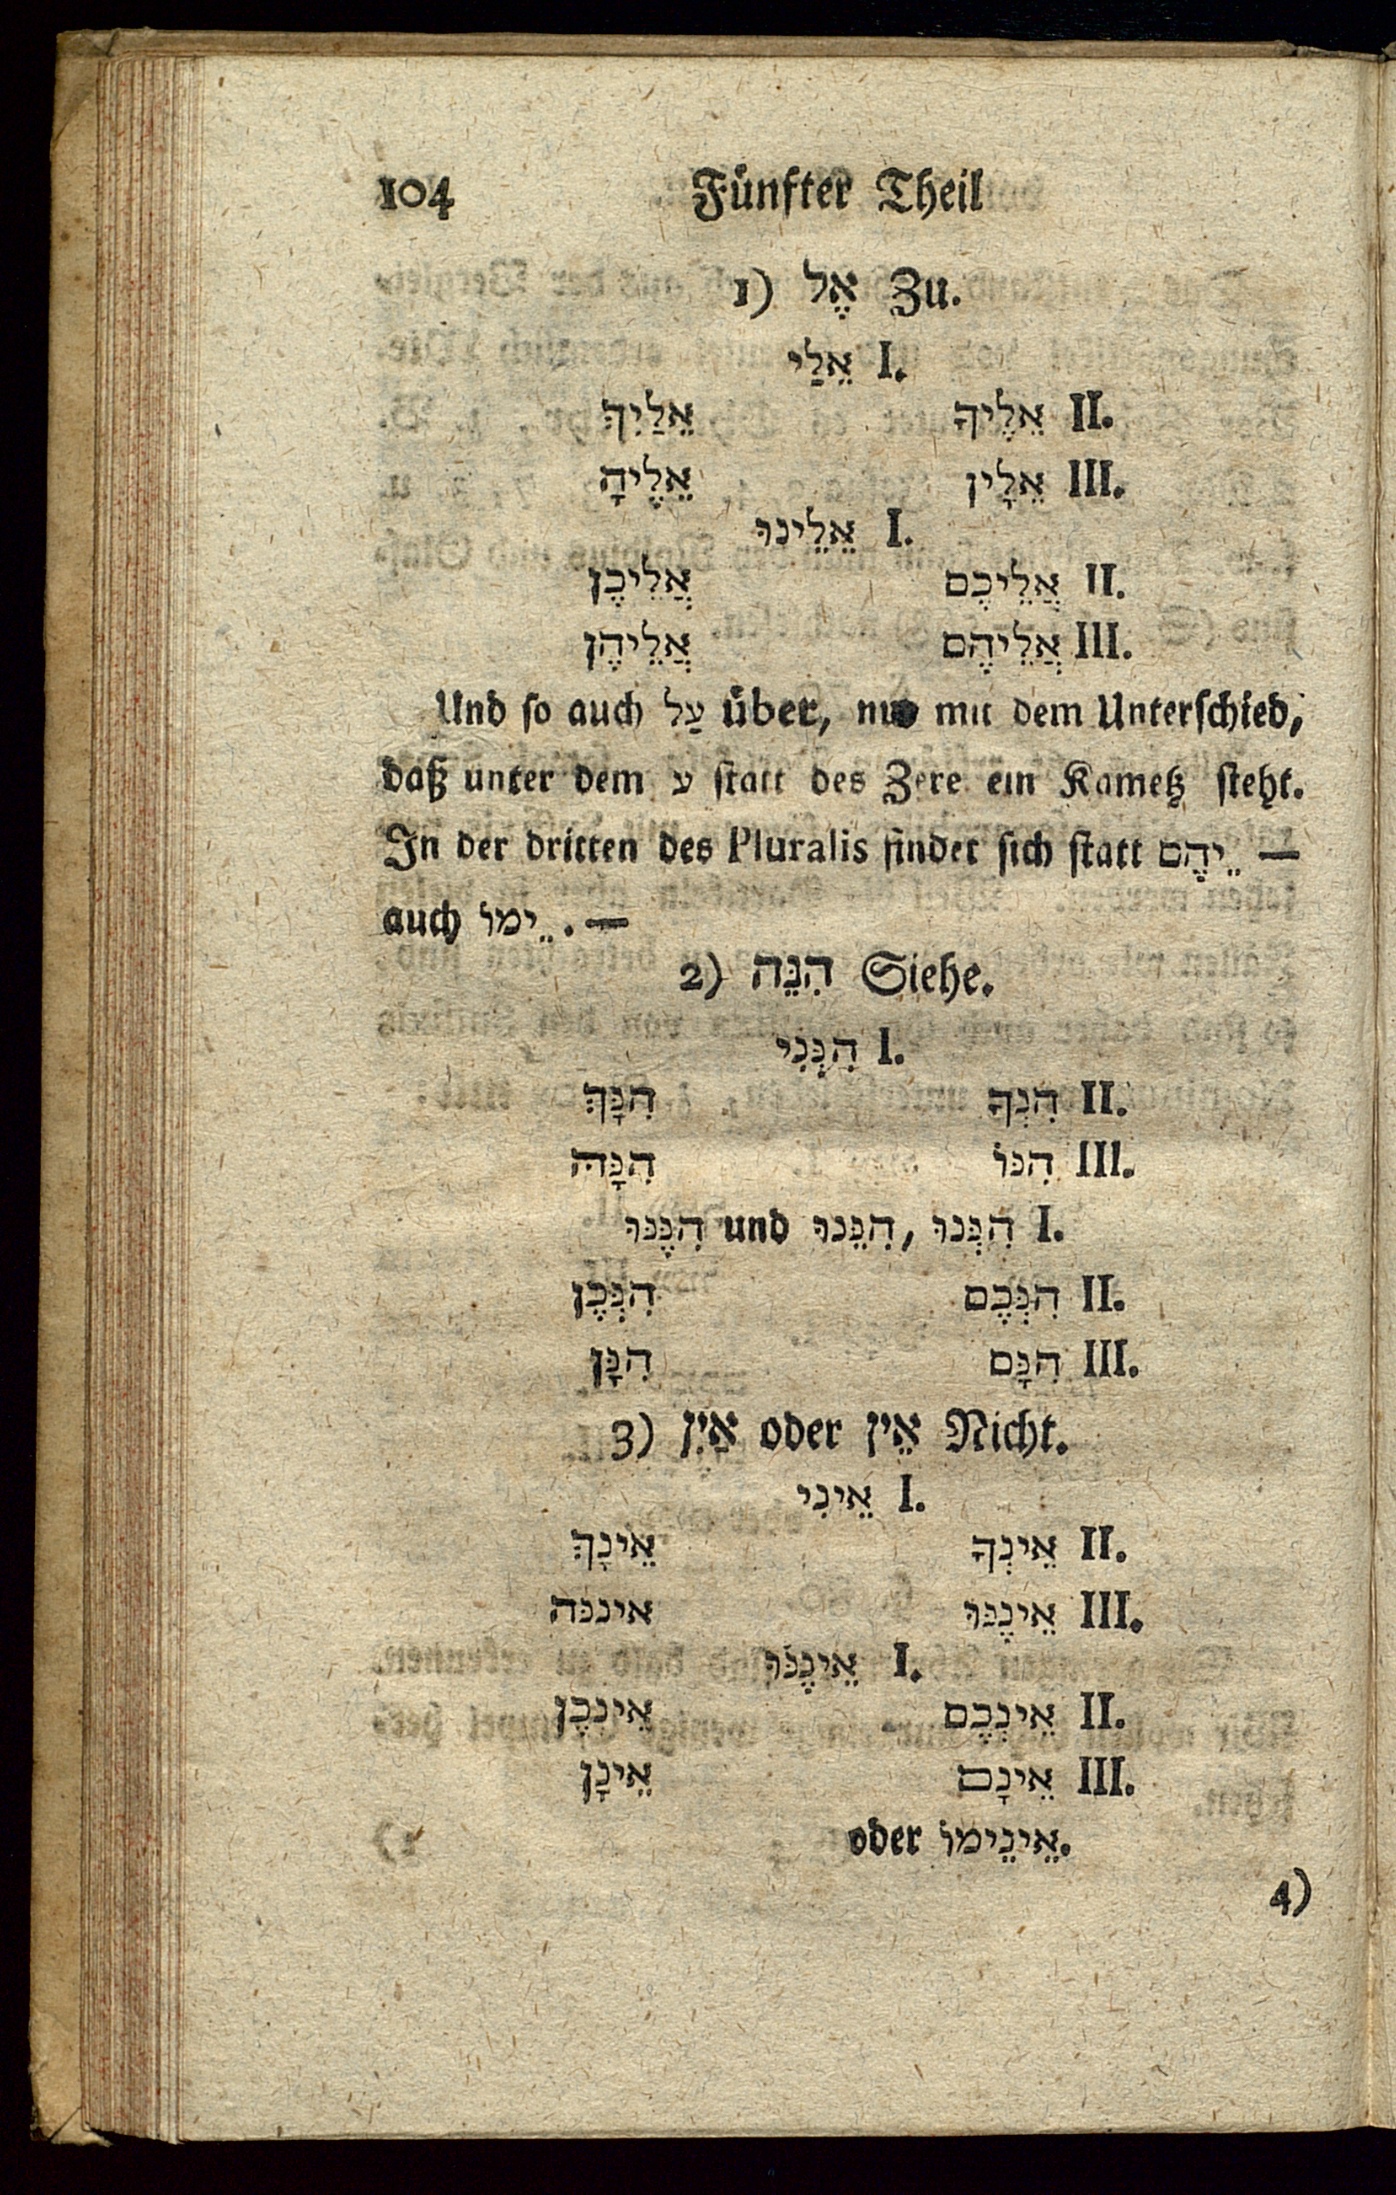 104 Fünfter Theil
1) אֶל Zu.
אֵלַי I.
אֵלַיִךְ אֵלֶיךָ II.
אֵלֶיהָ אֵלָין III.
אֵלֵינוּ I.
אֲלֵיכֶן אֲלֵיכֶם II.
אֲלֵיהֶן אֲלֵיהֶם III.
Und so auch עַל über, nur mit dem Unterschied,
daß unter dem ע statt des Zere ein Kametz steht.
In der dritten des Pluralis findet sich statt ֵיהֶם —
auch ֵימוֹ. —
2) הִנֵּה Siehe.
הִנְּנִי I.
הִנָּךְ הִנְךָ II.
הִנָּהּ הִנּוֹ III.
הִנֶּנּוּ und הִנֵּנוּ, הִנְּנוּ I.
הִנְּכֶן הִנְּכֶם II.
הִנָּן הִנָּם III.
3) אַיִן oder אֵין Nicht.
אֵינִי I.
אֵינָךְ אֵינְךָ II.
איננּה אֵינֶנּוּ III.
אֵינֶנּוּ I.
אֵינְכֶן אֵינְכֶם II.
אֵינָן אֵינָם III.
oder אֵינֵימוֹ.
4)